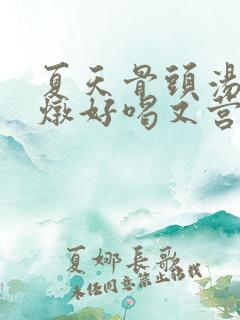 夏天骨頭湯
燉好喝又營
夏娜長歌
未經同意禁止轉載